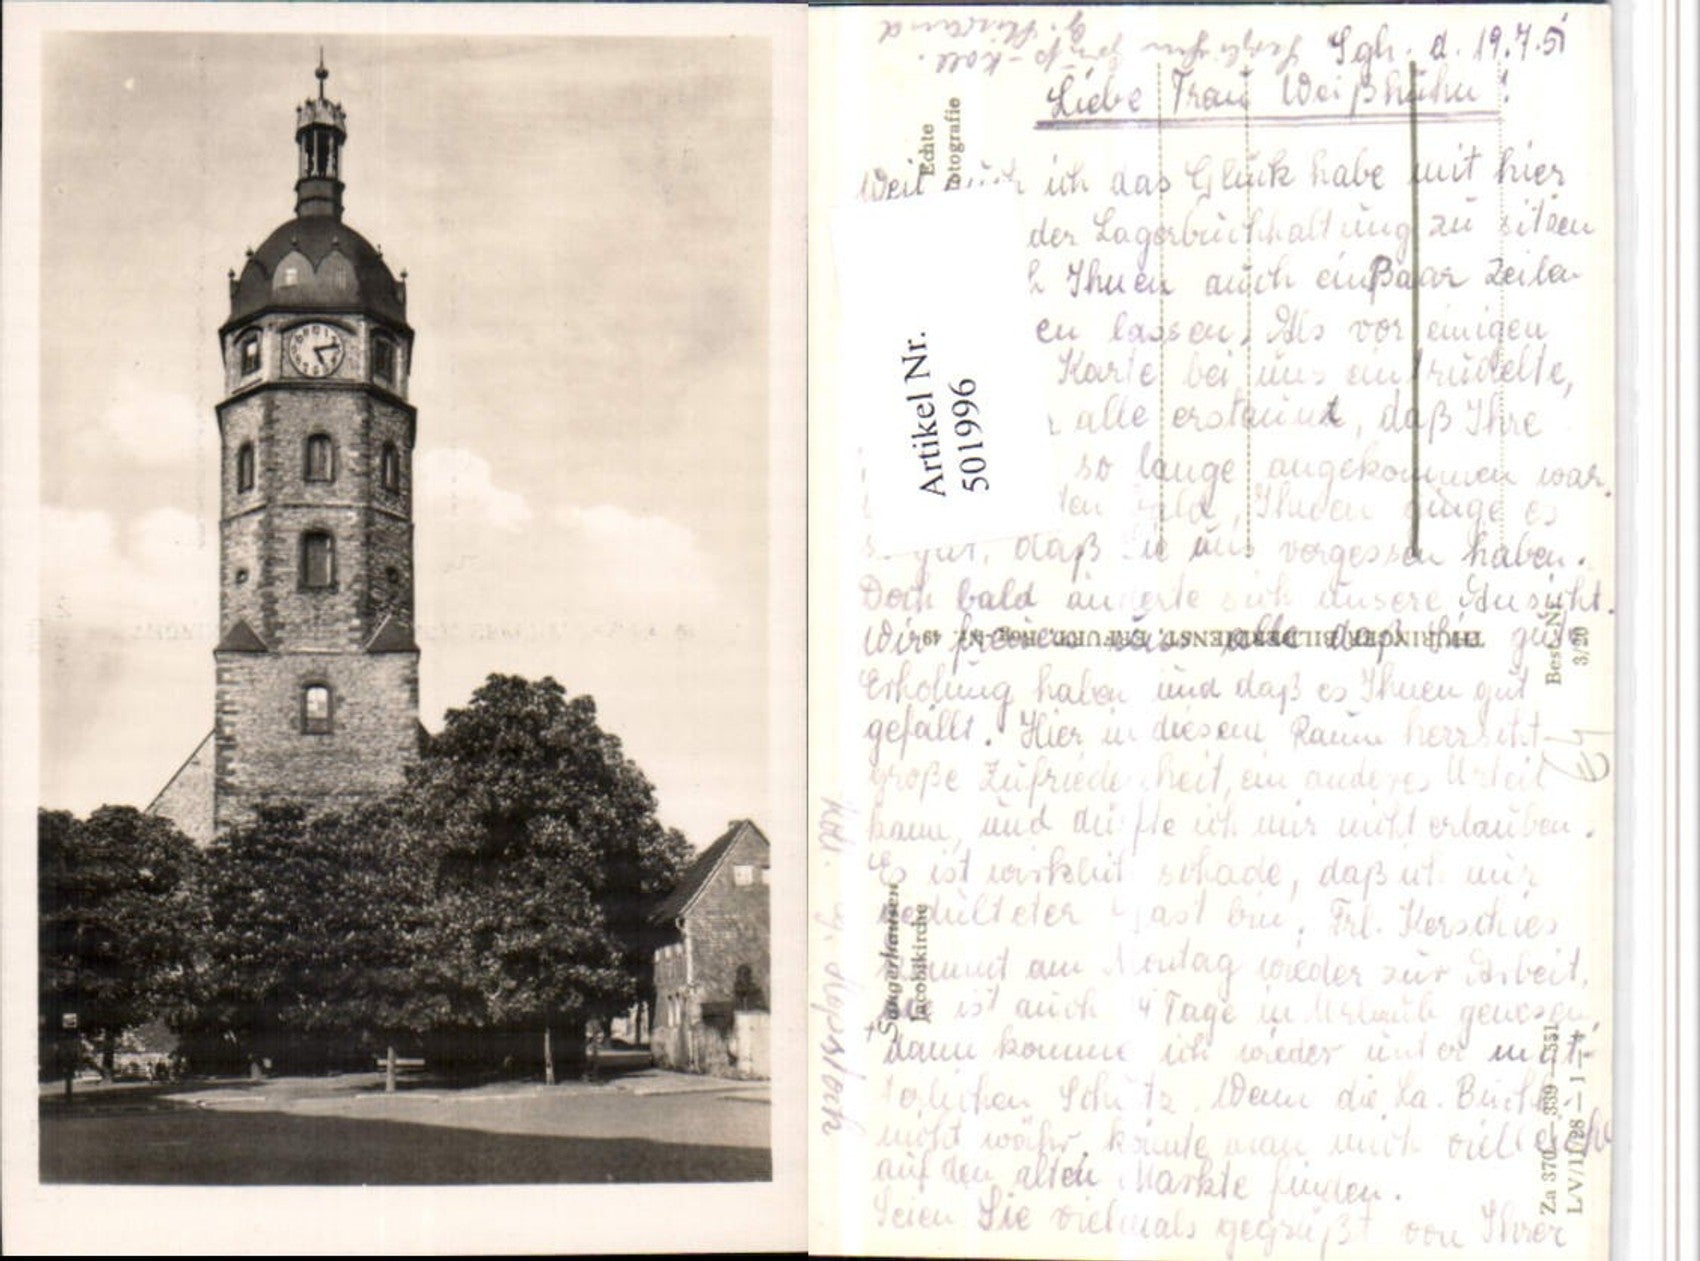 Sgh. d. 19.7.51
Liebe Frau Weißhuhn!
Weil auch ich das Glück habe mit hier
der Lagerbuchhaltung zu sitzen
Ihnen auch ein Paar Zeilen
en lassen. Als vor einigen
Karte bei uns eintrudelte,
alle erstaunt, daß Ihre
so lange angekommen war.
Ihnen ginge es
gut, daß Sie uns vergessen haben.
Doch bald änderte sich unsere Ansicht.
Wir freuen uns alle daß Sie gute
Erholung haben und daß es Ihnen gut
gefällt. Hier in diesem Raum herrscht
große Zufriedenheit, ein anderes Urteil
kann, und dürfte ich mir nicht erlauben.
Es ist wirklich schade, daß ich nur
gedulteter Gast bin, Frl. Kerschies
kommt am Montag wieder zur Arbeit,
sie ist auch 4 Tage in Urlaub gewesen,
dann komme ich wieder unter müt-
terlichen Schutz. Wenn die La. Buchh.
nicht wäre, könnte man mich vielleicht
auf den alten Markte finden.
Seien Sie vielmals gegrüßt von Ihrer
Echte
Fotografie
Artikel Nr.
501996
THÜRINGER BILDERDIENST, ERFURT, Reg.-Nr. 49
Best.-Nr.
3/20
Sangerhausen
Jacobikirche
Za 370 — 339 — 351
L/V/1/1/28 — 1 — 4